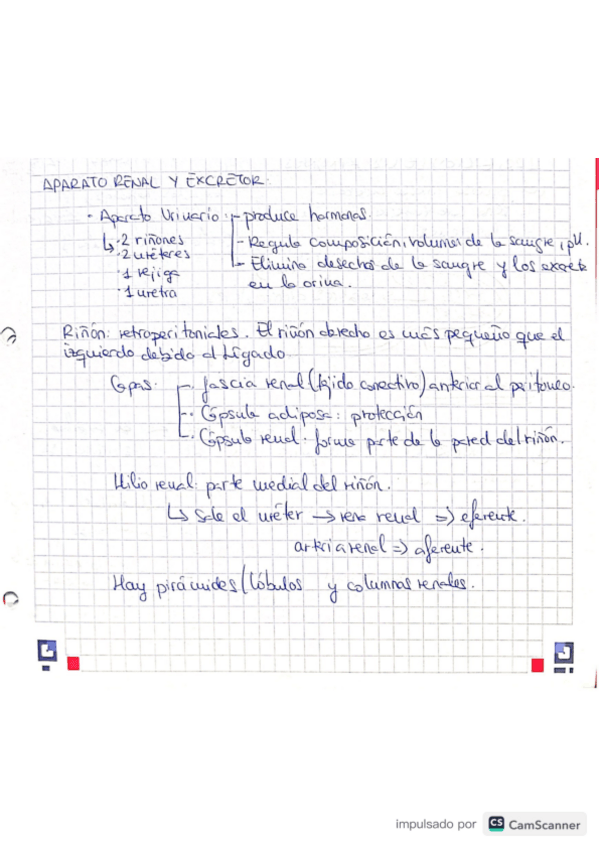 APARATO RENAL Y EXCRETOR.
- Aparato Urinario: - produce hormonas.
↳ · 2 riñones - Regula composición, volumen de la sangre, pH.
· 2 uréteres - Elimina desechos de la sangre y los excreta
· 1 vejiga en la orina.
· 1 uretra
Riñón: retroperitoneales. El riñón derecho es más pequeño que el
izquierdo debido al hígado
Capas: - fascia renal (tejido conectivo) anterior al peritoneo.
- Cápsula adiposa: protección
- Cápsula renal: forma parte de la pared del riñón.
Hilio renal: parte medial del riñón.
↳ Sale el uréter → vena renal => eferente.
arteria renal => aferente.
Hay pirámides (lóbulos y columnas renales.
impulsado por CS CamScanner